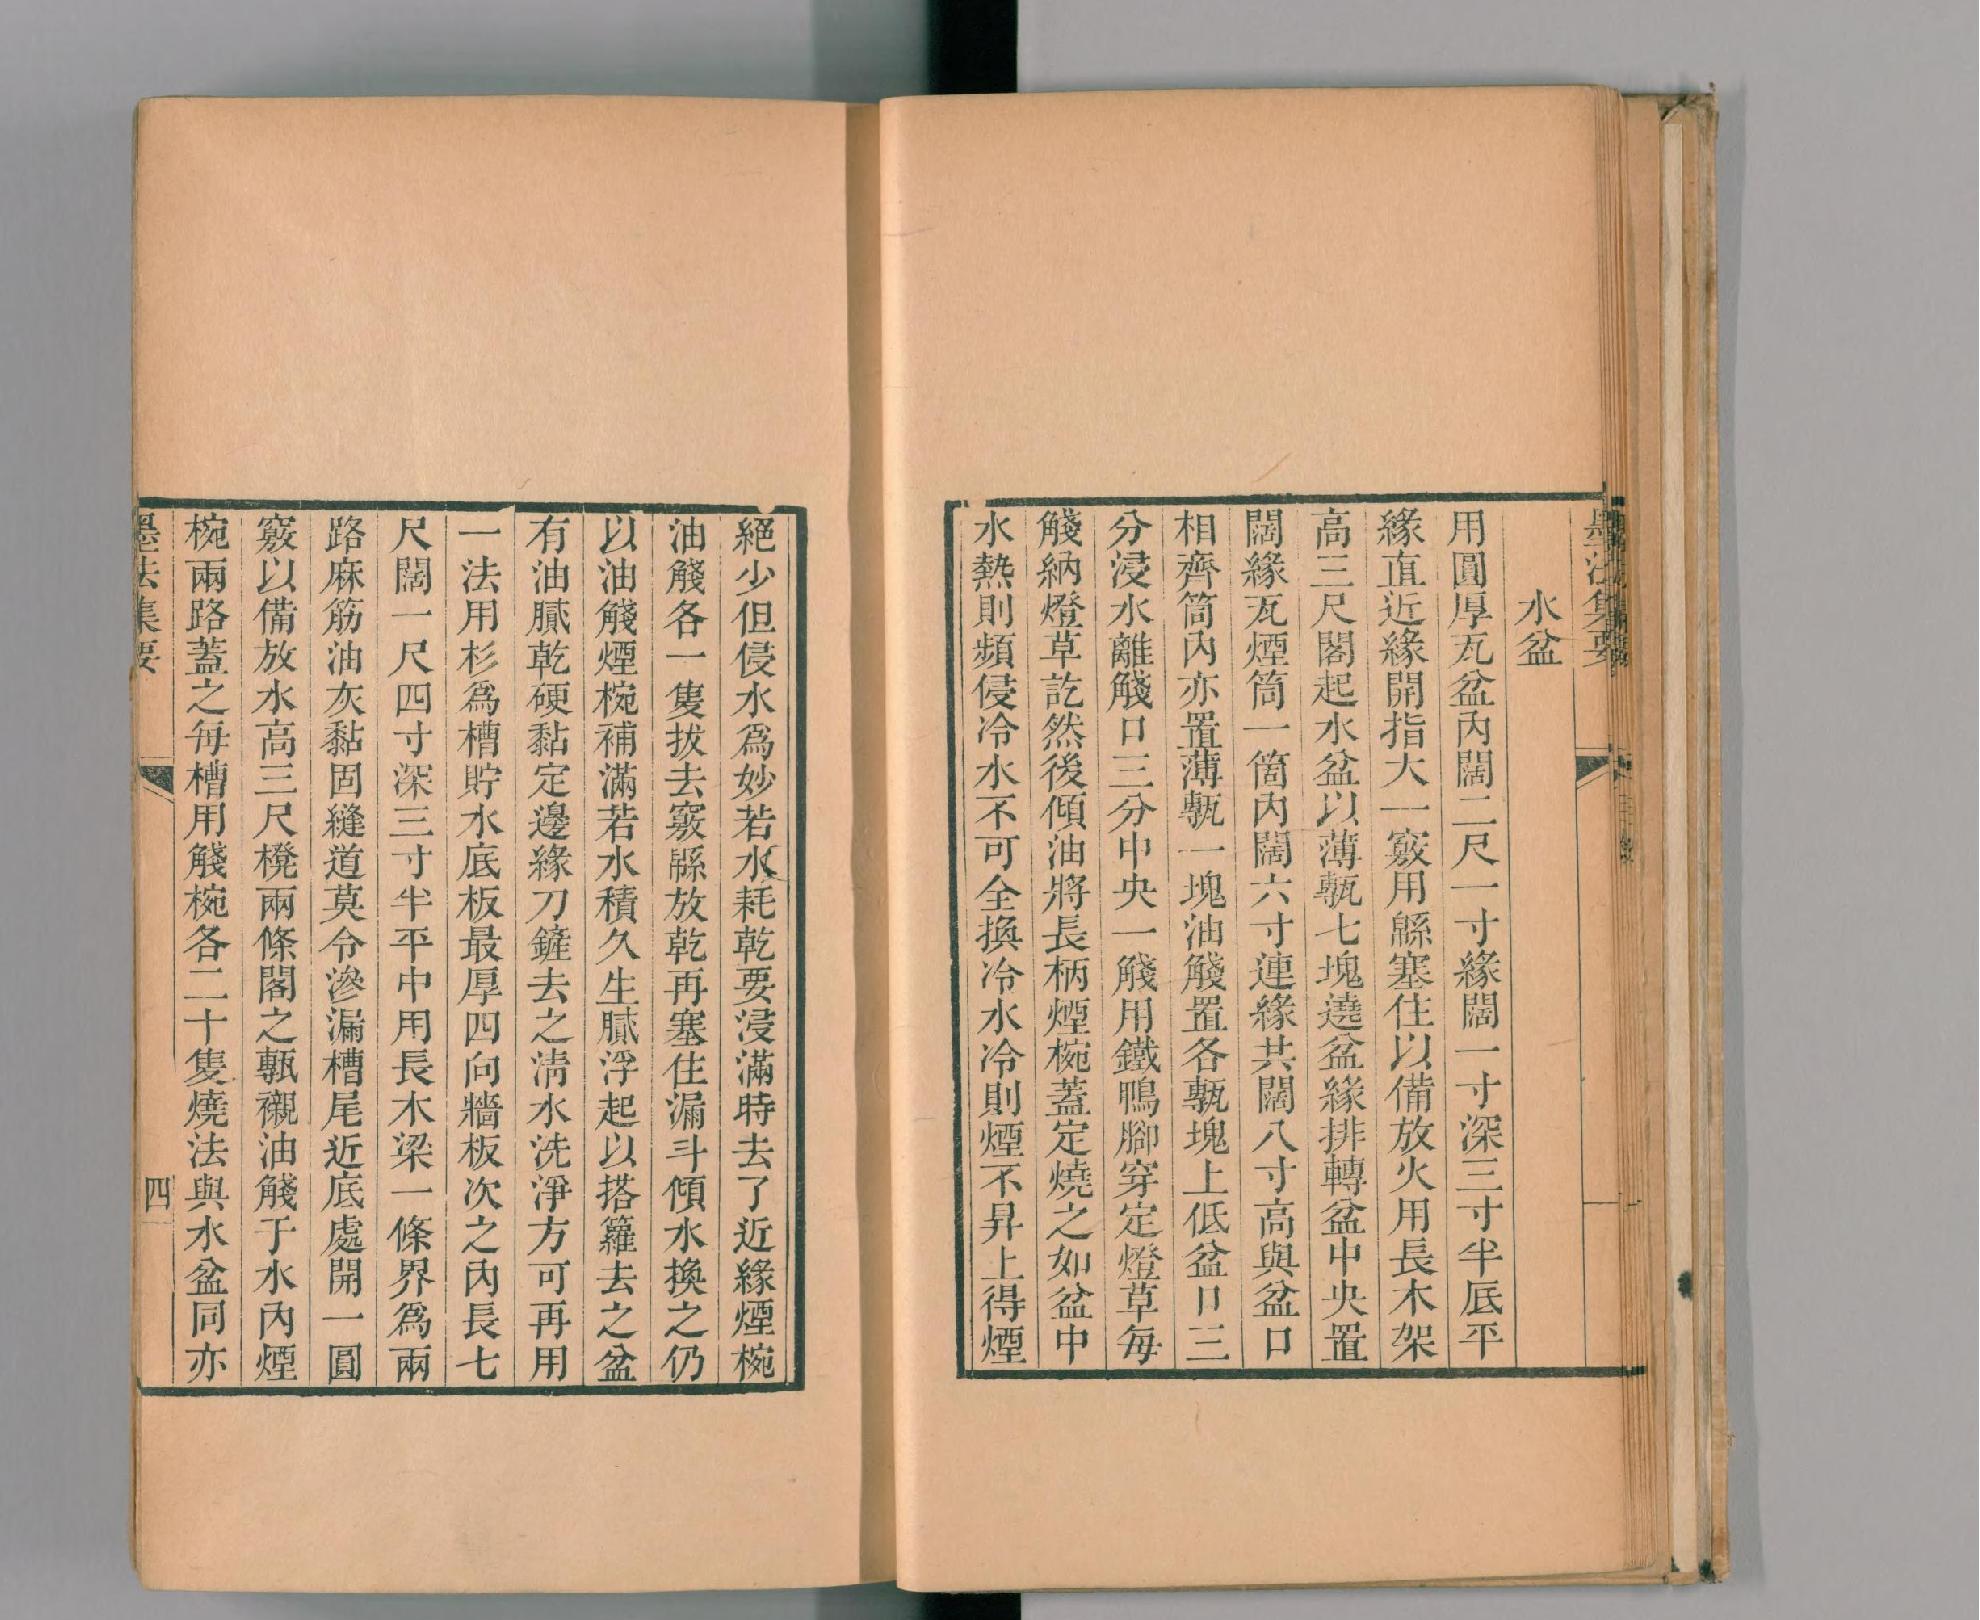 墨法集要
水盆
用圓厚瓦盆內闊二尺一寸緣闊一寸深三寸半底平
緣直近緣開指大一竅用緜塞住以備放火用長木架
高三尺閣起水盆以薄甎七塊遶盆緣排轉盆中央置
闊緣瓦煙筒一箇內闊六寸連緣共闊八寸高與盆口
相齊筒內亦置薄甎一塊油觹置各甎塊上低盆口三
分浸水離觹口三分中央一觹用鐵鴨腳穿定燈草每
觹納燈草訖然後傾油將長柄煙椀蓋定燒之如盆中
水熱則頻侵冷水不可全換冷水冷則煙不昇上得煙
絕少但侵水爲妙若水耗乾要浸滿時去了近緣煙椀
油觹各一隻拔去竅緜放乾再塞住漏斗傾水換之仍
以油觹煙椀補滿若水積久生膩浮起以搭籮去之盆
有油膩乾硬黏定邊緣刀鏟去之淸水洗淨方可再用
一法用杉爲槽貯水底板最厚四向牆板次之內長七
尺闊一尺四寸深三寸半平中用長木梁一條界爲兩
路麻筋油灰黏固縫道莫令滲漏槽尾近底處開一圓
竅以備放水高三尺櫈兩條閣之甎襯油觹于水內煙
椀兩路蓋之每槽用觹椀各二十隻燒法與水盆同亦
墨法集要
四